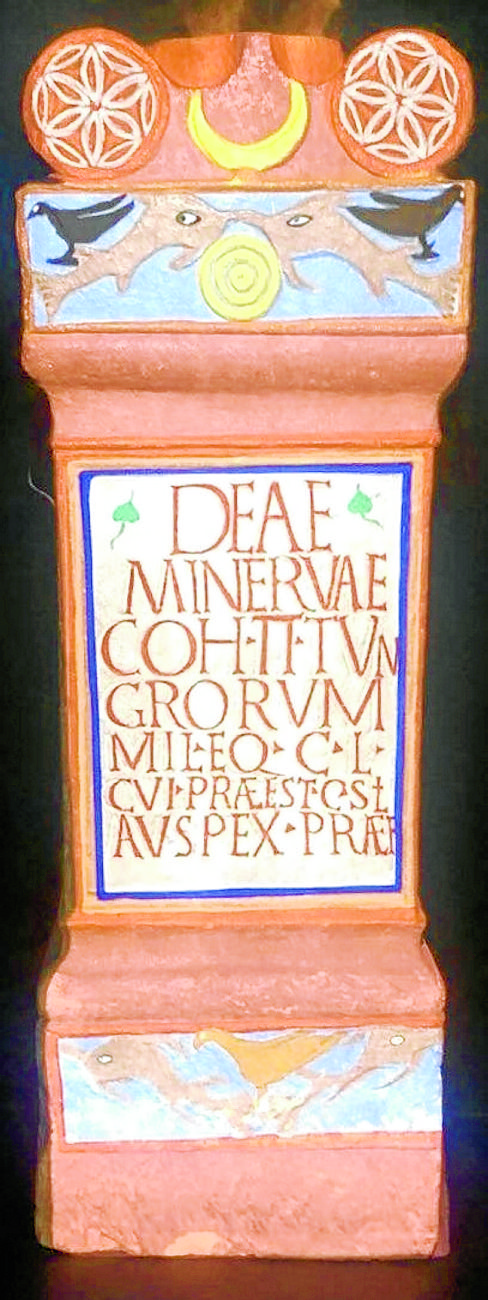 DEAE
MINERVAE
COH·II·TVN
GRORVM
MIL·EQ·C·L·
CVI·PRÆEST·C·SL
AVSPEX·PRÆF